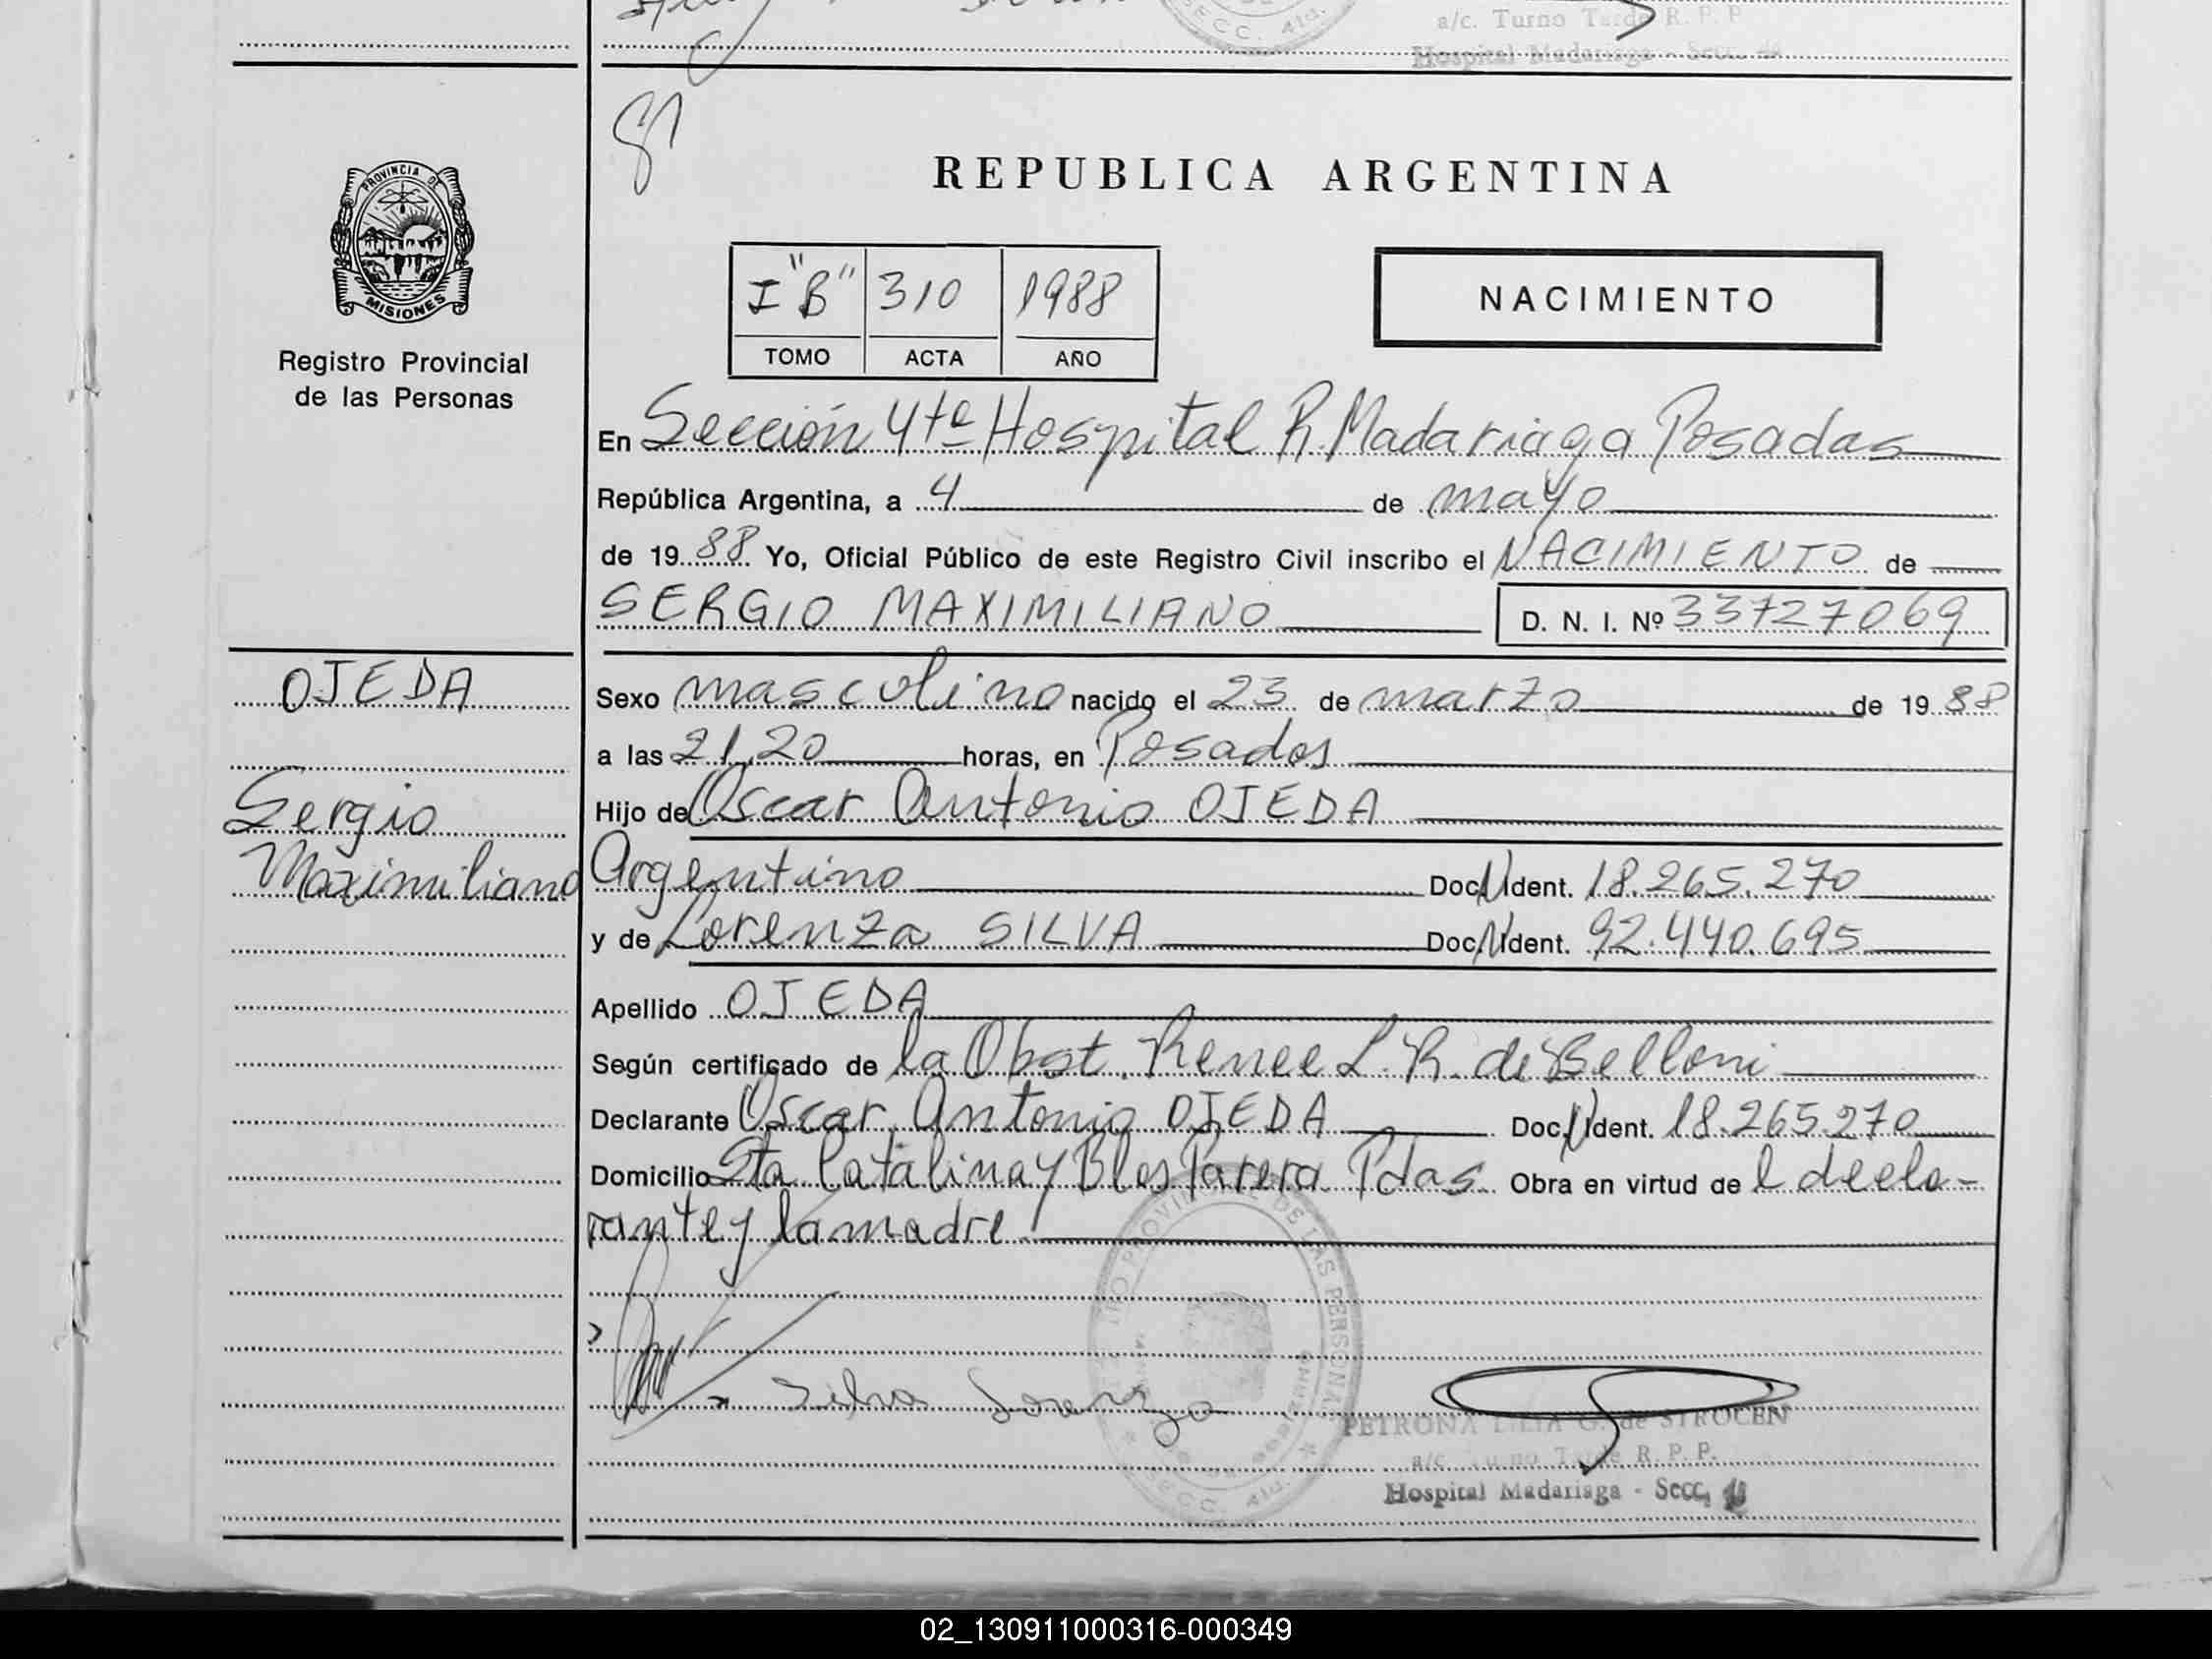 a/c. Turno Tarde R. P. P.
Hospital Madariaga - Secc. 4a
PROVINCIA DE
MISIONES
Registro Provincial
de las Personas
REPUBLICA ARGENTINA
I "B" 310 1988
TOMO ACTA AÑO
NACIMIENTO
En Sección 4ta Hospital R. Madariaga Posadas
República Argentina, a 4 de mayo
de 1988 Yo, Oficial Público de este Registro Civil inscribo el NACIMIENTO de
SERGIO MAXIMILIANO D. N. I. Nº 33727069
OJEDA
Sergio
Maximiliano
Sexo masculino nacido el 23 de marzo de 1988
a las 21,20 horas, en Posadas
Hijo de Oscar Antonio OJEDA
Argentino Doc. N Ident. 18.265.270
y de Lorenza SILVA Doc. N Ident. 92.440.695
Apellido OJEDA
Según certificado de la Obst. Renee L. R. de Belloni
Declarante Oscar Antonio OJEDA Doc. N Ident. 18.265.270
Domicilio Sta Catalina y Blas Parera Pdas Obra en virtud de l decla-
rante y la madre
Silva Lorenza
PETRONA LILIA G. de STROCEN
a/c. Turno Tarde R. P. P.
Hospital Madariaga - Secc.
02_130911000316-000349